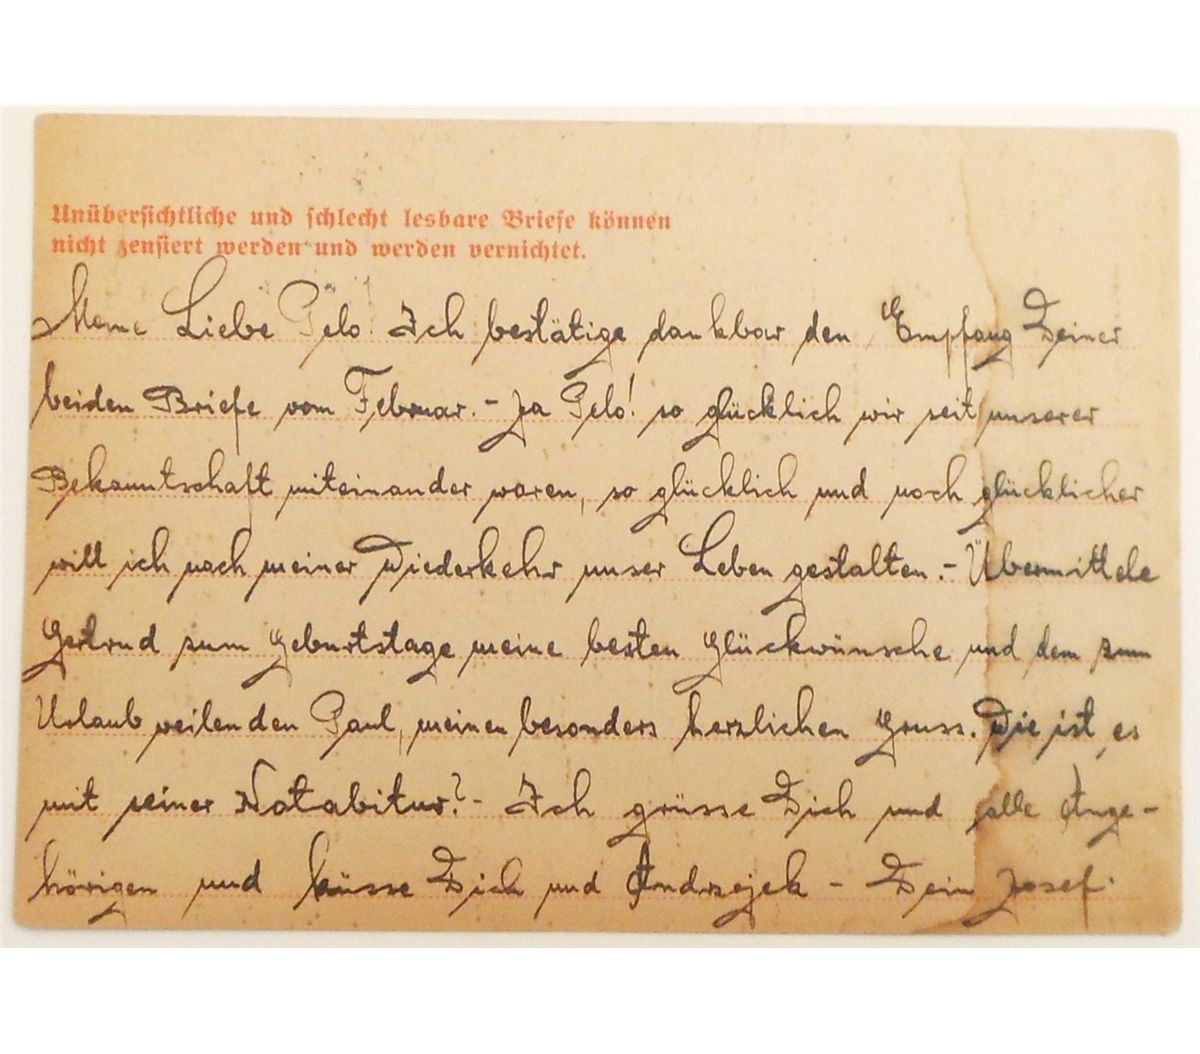 Unübersichtliche und schlecht lesbare Briefe können
nicht zensiert werden und werden vernichtet.
Meine Liebe Pelo! Ich bestätige dankbar den Empfang Deiner
beiden Briefe vom Februar. - Ja Pelo! so glücklich wir seit unserer
Bekanntschaft miteinander waren, so glücklich und noch glücklicher
will ich nach meiner Wiederkehr unser Leben gestalten. - Übermittele
Gertrud zum Geburtstage meine besten Glückwünsche und dem zum
Urlaub weilenden Paul, meinen besonders herzlichen Gruss. Wie ist es
mit seiner Notabitur? - Ich grüsse Dich und alle Ange-
hörigen und küsse Dich und Andrzejek - Dein Josef.